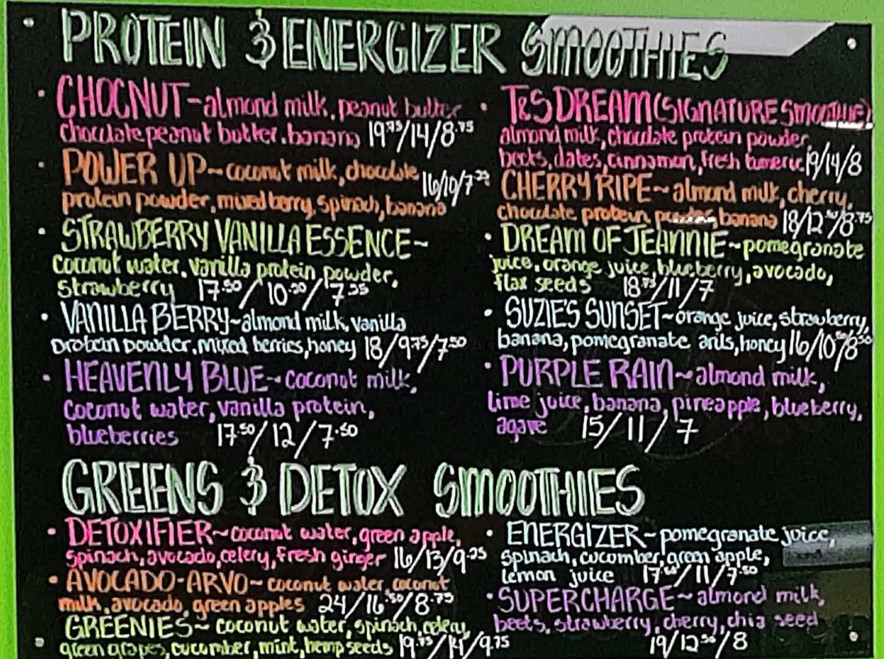 PROTEIN & ENERGIZER SMOOTHIES
• CHOCNUT-almond milk, peanut butter
chocolate peanut butter, banana 19.75/14/8.75
• POWER UP~coconut milk, chocolate
protein powder, mixed berry, spinach, banana 16/10/7.25
• STRAWBERRY VANILLA ESSENCE~
coconut water, vanilla protein powder,
strawberry 17.50/10.50/7.25
• VANILLA BERRY~almond milk, vanilla
protein powder, mixed berries, honey 18/9.75/7.50
• HEAVENLY BLUE~coconut milk,
coconut water, vanilla protein,
blueberries 17.50/12/7.50
• T&S DREAM (SIGNATURE SMOOTHIE)
almond milk, chocolate protein powder,
beets, dates, cinnamon, fresh tumeric 19/14/8
CHERRY RIPE~almond milk, cherry,
chocolate protein, powder, banana 18/12.50/8.75
• DREAM OF JEANNIE~pomegranate
juice, orange juice, blueberry, avocado,
flax seeds 18.75/11/7
• SUZIE'S SUNSET~orange juice, strawberry,
banana, pomegranate arils, honey 16/10.50/8.50
• PURPLE RAIN~almond milk,
lime juice, banana, pineapple, blueberry,
agave 15/11/7
GREENS & DETOX SMOOTHIES
• DETOXIFIER~coconut water, green apple,
spinach, avocado, celery, fresh ginger 16/13/9.25
• AVOCADO-ARVO~coconut water, coconut
milk, avocado, green apples 24/16.50/8.75
GREENIES~coconut water, spinach, celery,
green grapes, cucumber, mint, hemp seeds 19.75/14/9.75
• ENERGIZER~pomegranate juice,
spinach, cucumber, green apple,
lemon juice 17.50/11/7.50
• SUPERCHARGE~almond milk,
beets, strawberry, cherry, chia seed
19/12.50/8